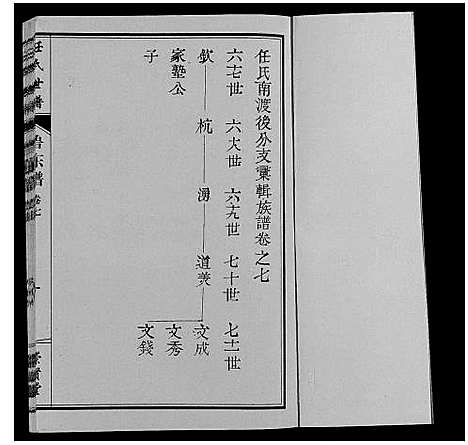 任氏南渡後分支彙輯族譜卷之七
六七世 六八世 六九世 七十世 七一世
欽 杭 湧 道美 文成
家塾公 文秀
子 文錢
任氏世譜
卷七